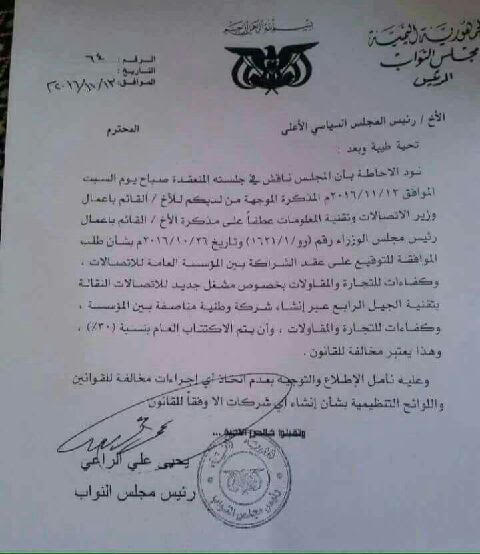 بسم الله الرحمن الرحيم
الجمهورية اليمنية
مجلس النواب
الرئيس
الرقم : ٦٤
التاريخ :
الموافق: ٢٠١٦/١٠/١٣
الأخ / رئيس المجلس السياسي الأعلى المحترم
تحية طيبة وبعد :
نود الاحاطة بأن المجلس ناقش في جلسته المنعقدة صباح يوم السبت
الموافق ٢٠١٦/١١/١٢م المذكرة الموجهة من لديكم للأخ / القائم بأعمال
وزير الاتصالات وتقنية المعلومات عطفاً على مذكرة الأخ / القائم بأعمال
رئيس مجلس الوزراء رقم (رو/١٦٢١/١) وتاريخ ٢٠١٦/١٠/٢٦م بشأن طلب
الموافقة للتوقيع على عقد الشراكة بين المؤسسة العامة للاتصالات ،
وكفاءات للتجارة والمقاولات بخصوص مشغل جديد للاتصالات النقالة
بتقنية الجيل الرابع عبر إنشاء شركة وطنية مناصفة بين المؤسسة ،
وكفاءات للتجارة والمقاولات ، وأن يتم الاكتتاب العام بنسبة (٣٠٪) ،
وهذا يعتبر مخالفة للقانون .
وعليه نأمل الإطلاع والتوجيه بعدم اتخاذ أي إجراءات مخالفة للقوانين
واللوائح التنظيمية بشأن إنشاء أي شركات الا وفقاً للقانون
وتقبلوا خالص التحية ...
يحيى علي الراعي
رئيس مجلس النواب